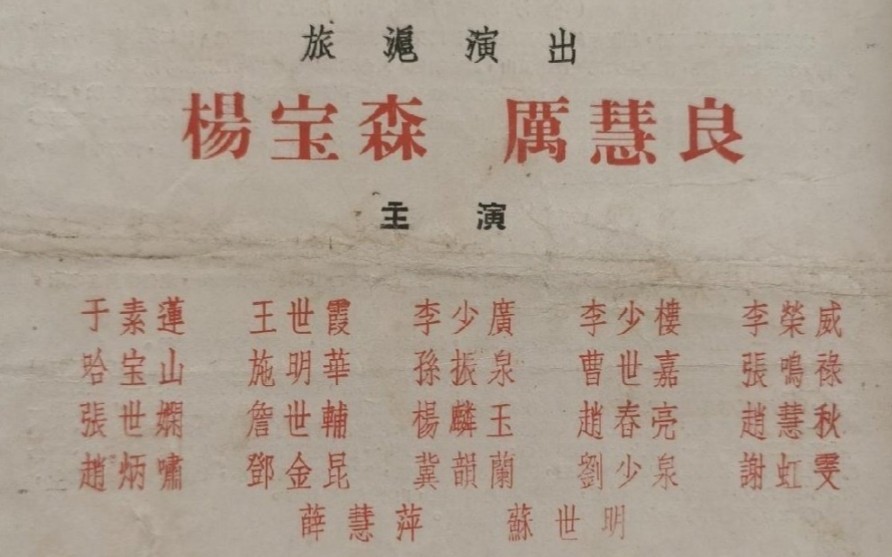 旅滬演出
楊宝森 厲慧良
主演
于素蓮 王世霞 李少廣 李少樓 李榮威
哈宝山 施明華 孫振泉 曹世嘉 張鳴祿
張世嫻 詹世輔 楊麟玉 趙春亮 趙慧秋
趙炳嘯 鄧金昆 冀韻蘭 劉少泉 謝虹雯
薛慧萍 蘇世明